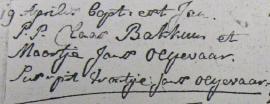 19 Aprilis bapt: est Jan.
P.P. Claas Bakkum et
Maartje Jans Olyevaar.
Suscepit Vrontje Jans Olyevaar.